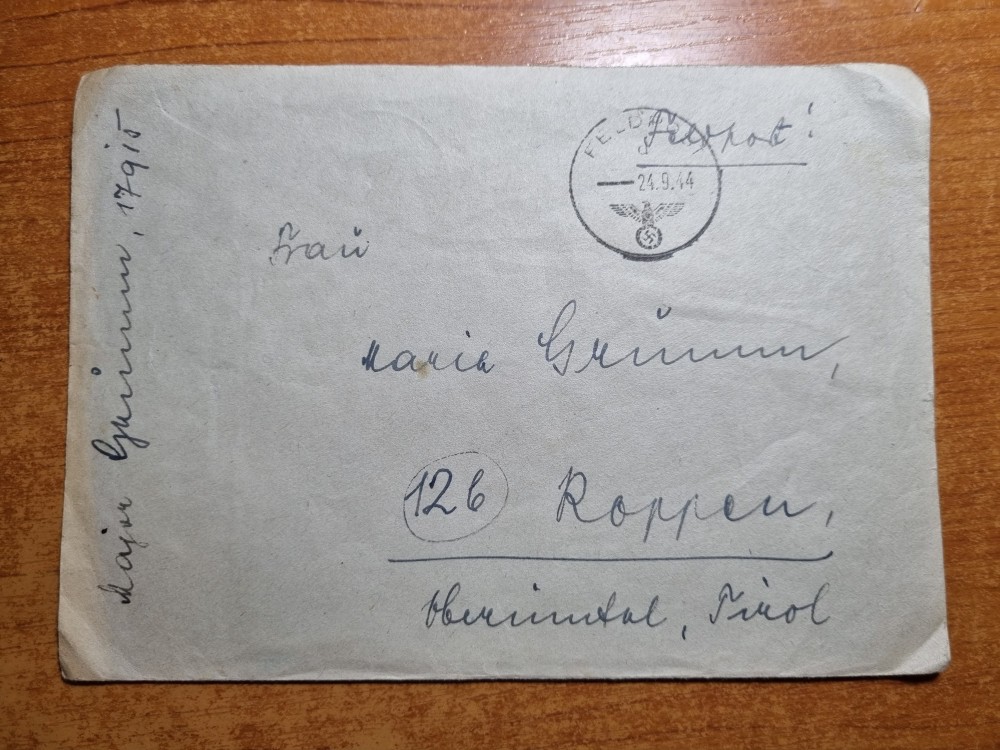 Feldpost!
FELDPOST
d
24.9.44
Frau
Maria Grimm,
12b Roppen,
Oberinntal, Tirol
Major Grimm, 17915